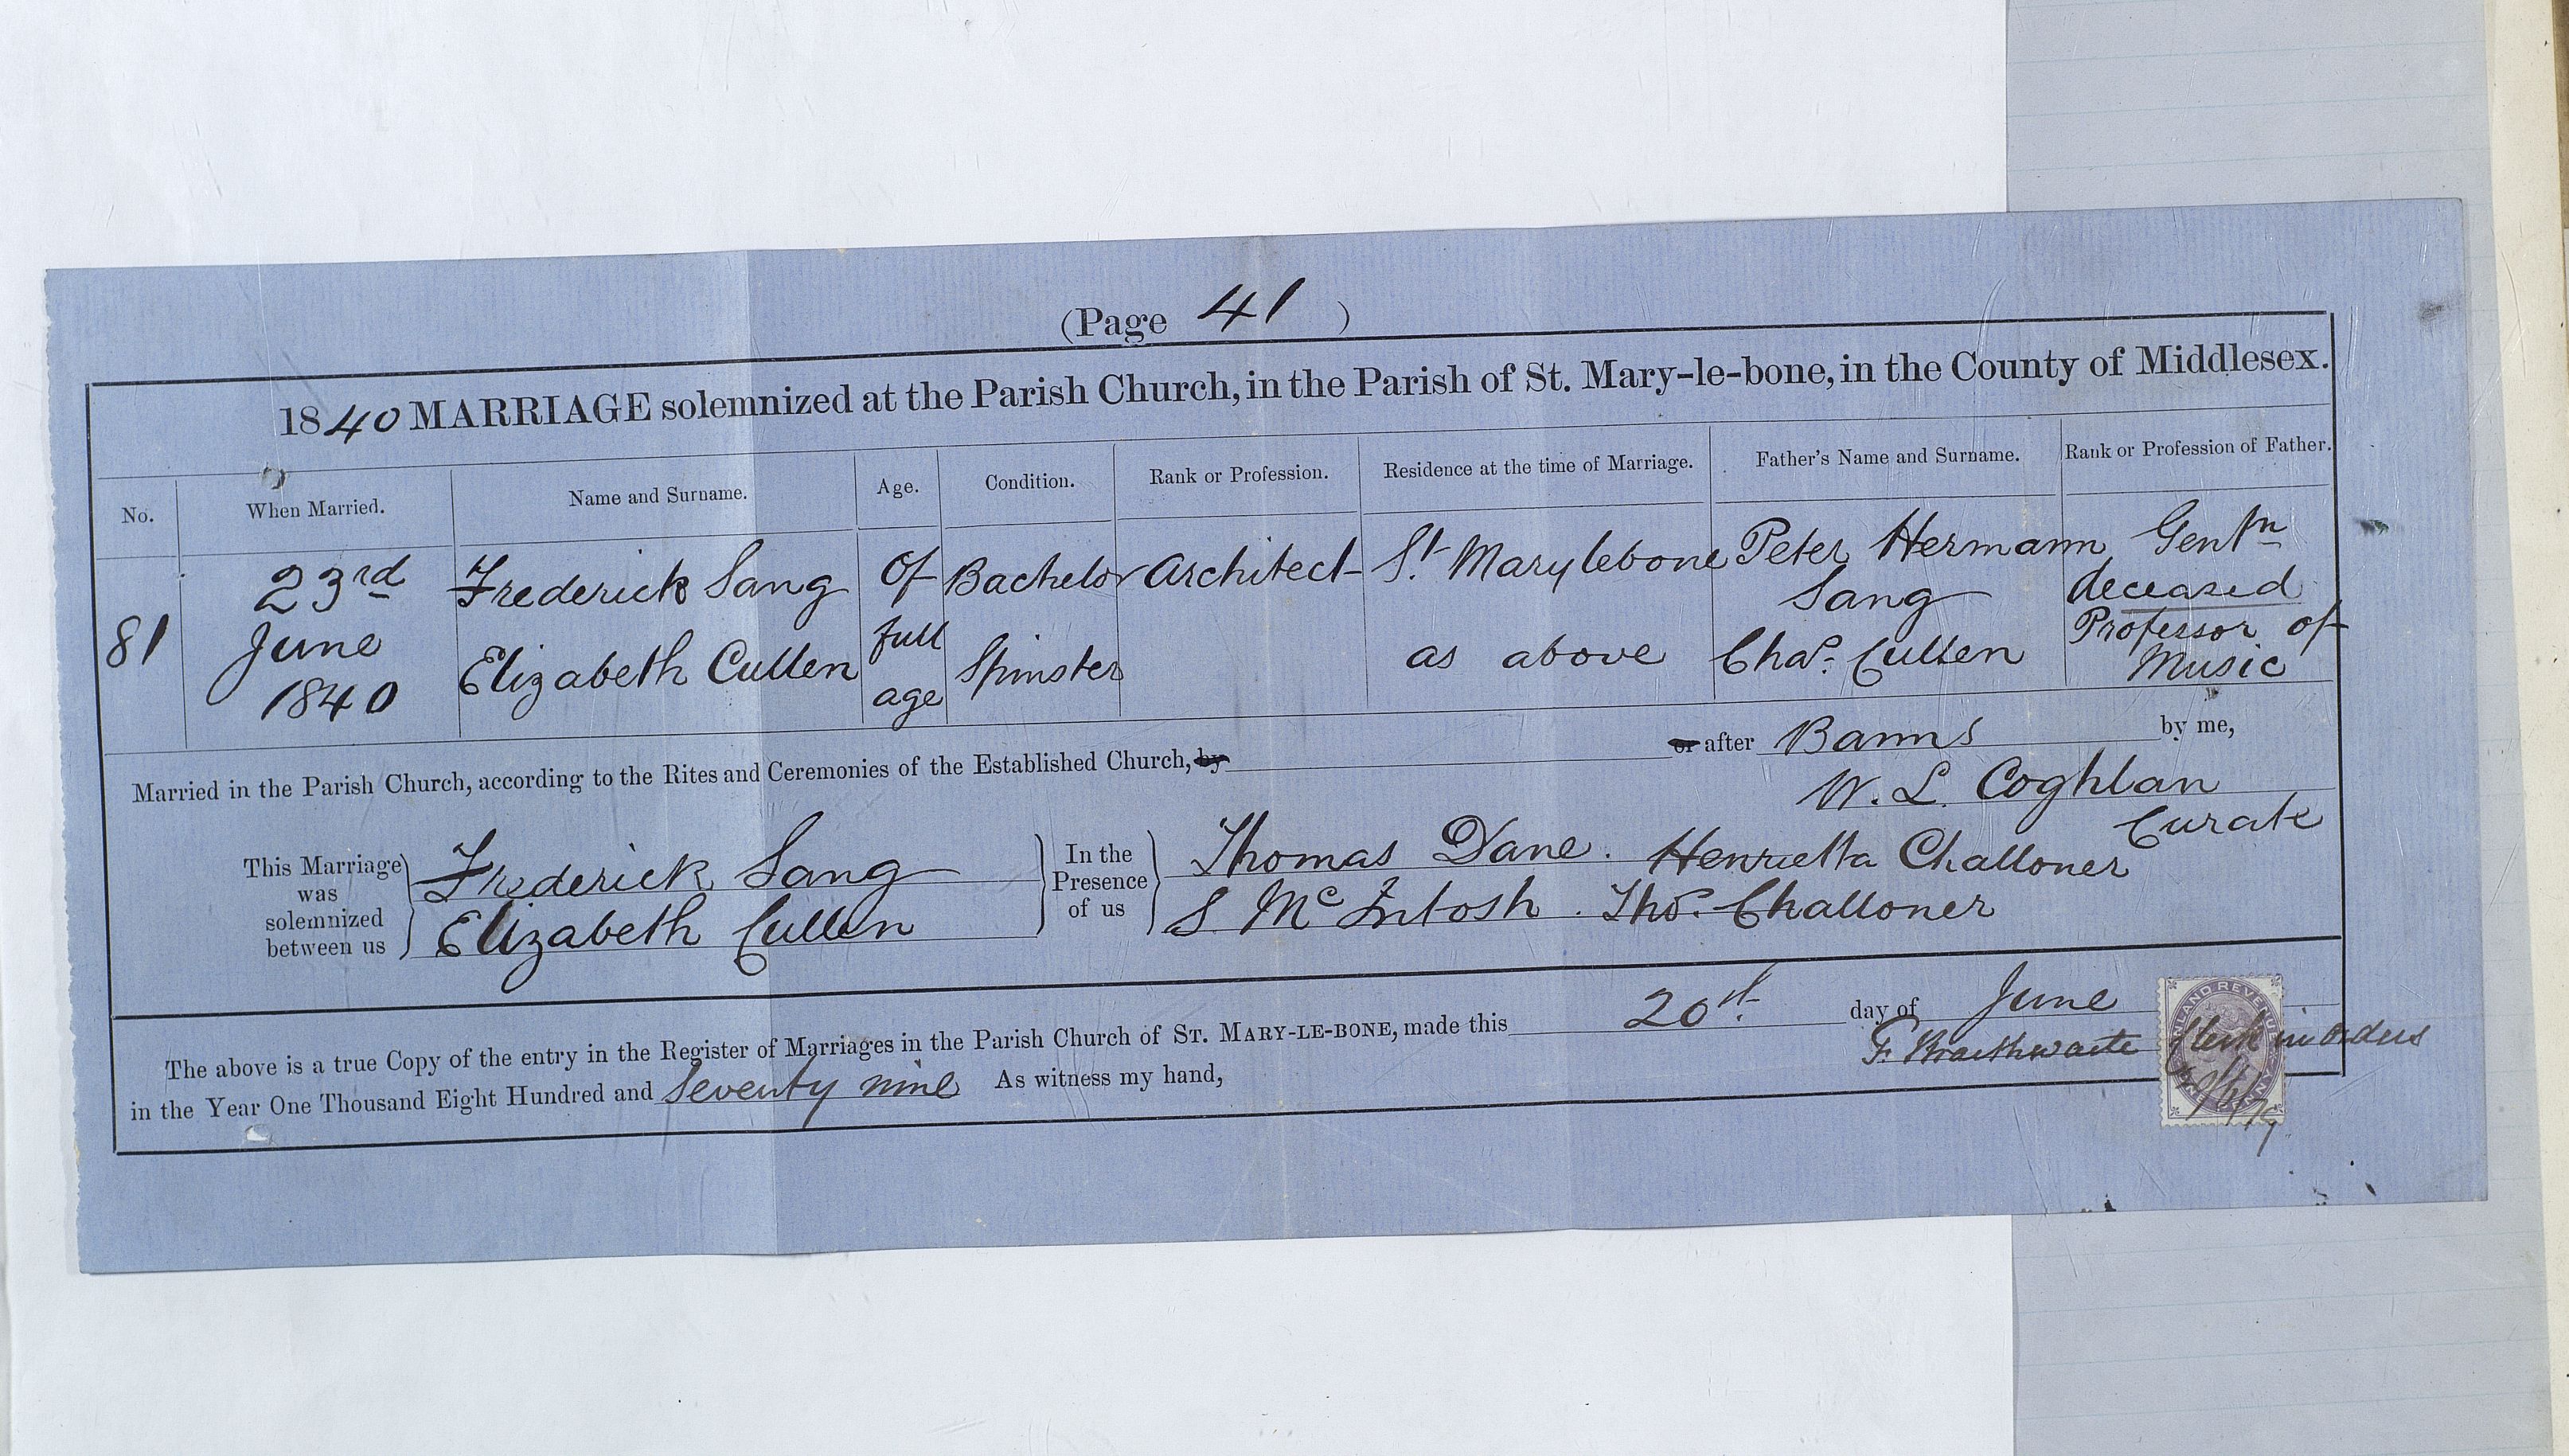 (Page 41 )
1840 MARRIAGE solemnized at the Parish Church, in the Parish of St. Mary-le-bone, in the County of Middlesex.
No. When Married. Name and Surname. Age. Condition. Rank or Profession. Residence at the time of Marriage. Father's Name and Surname. Rank or Profession of Father.
81 23rd June 1840 Frederick Sang Of full age Bachelor Architect St. Marylebone Peter Hermann Sang Gentn deceased
Elizabeth Cullen Spinster as above Chas. Cullen Professor of Music
Married in the Parish Church, according to the Rites and Ceremonies of the Established Church, by or after Banns by me,
W. L. Coghlan
Curate
This Marriage was solemnized between us
Frederick Sang
Elizabeth Cullen
In the Presence of us
Thomas Dane. Henrietta Challoner
S. McIntosh. Thos. Challoner
The above is a true Copy of the entry in the Register of Marriages in the Parish Church of ST. MARY-LE-BONE, made this 20th day of June
in the Year One Thousand Eight Hundred and Seventy nine As witness my hand,
F. Braithwaite Clerk in orders
INLAND REVENUE
ONE PENNY